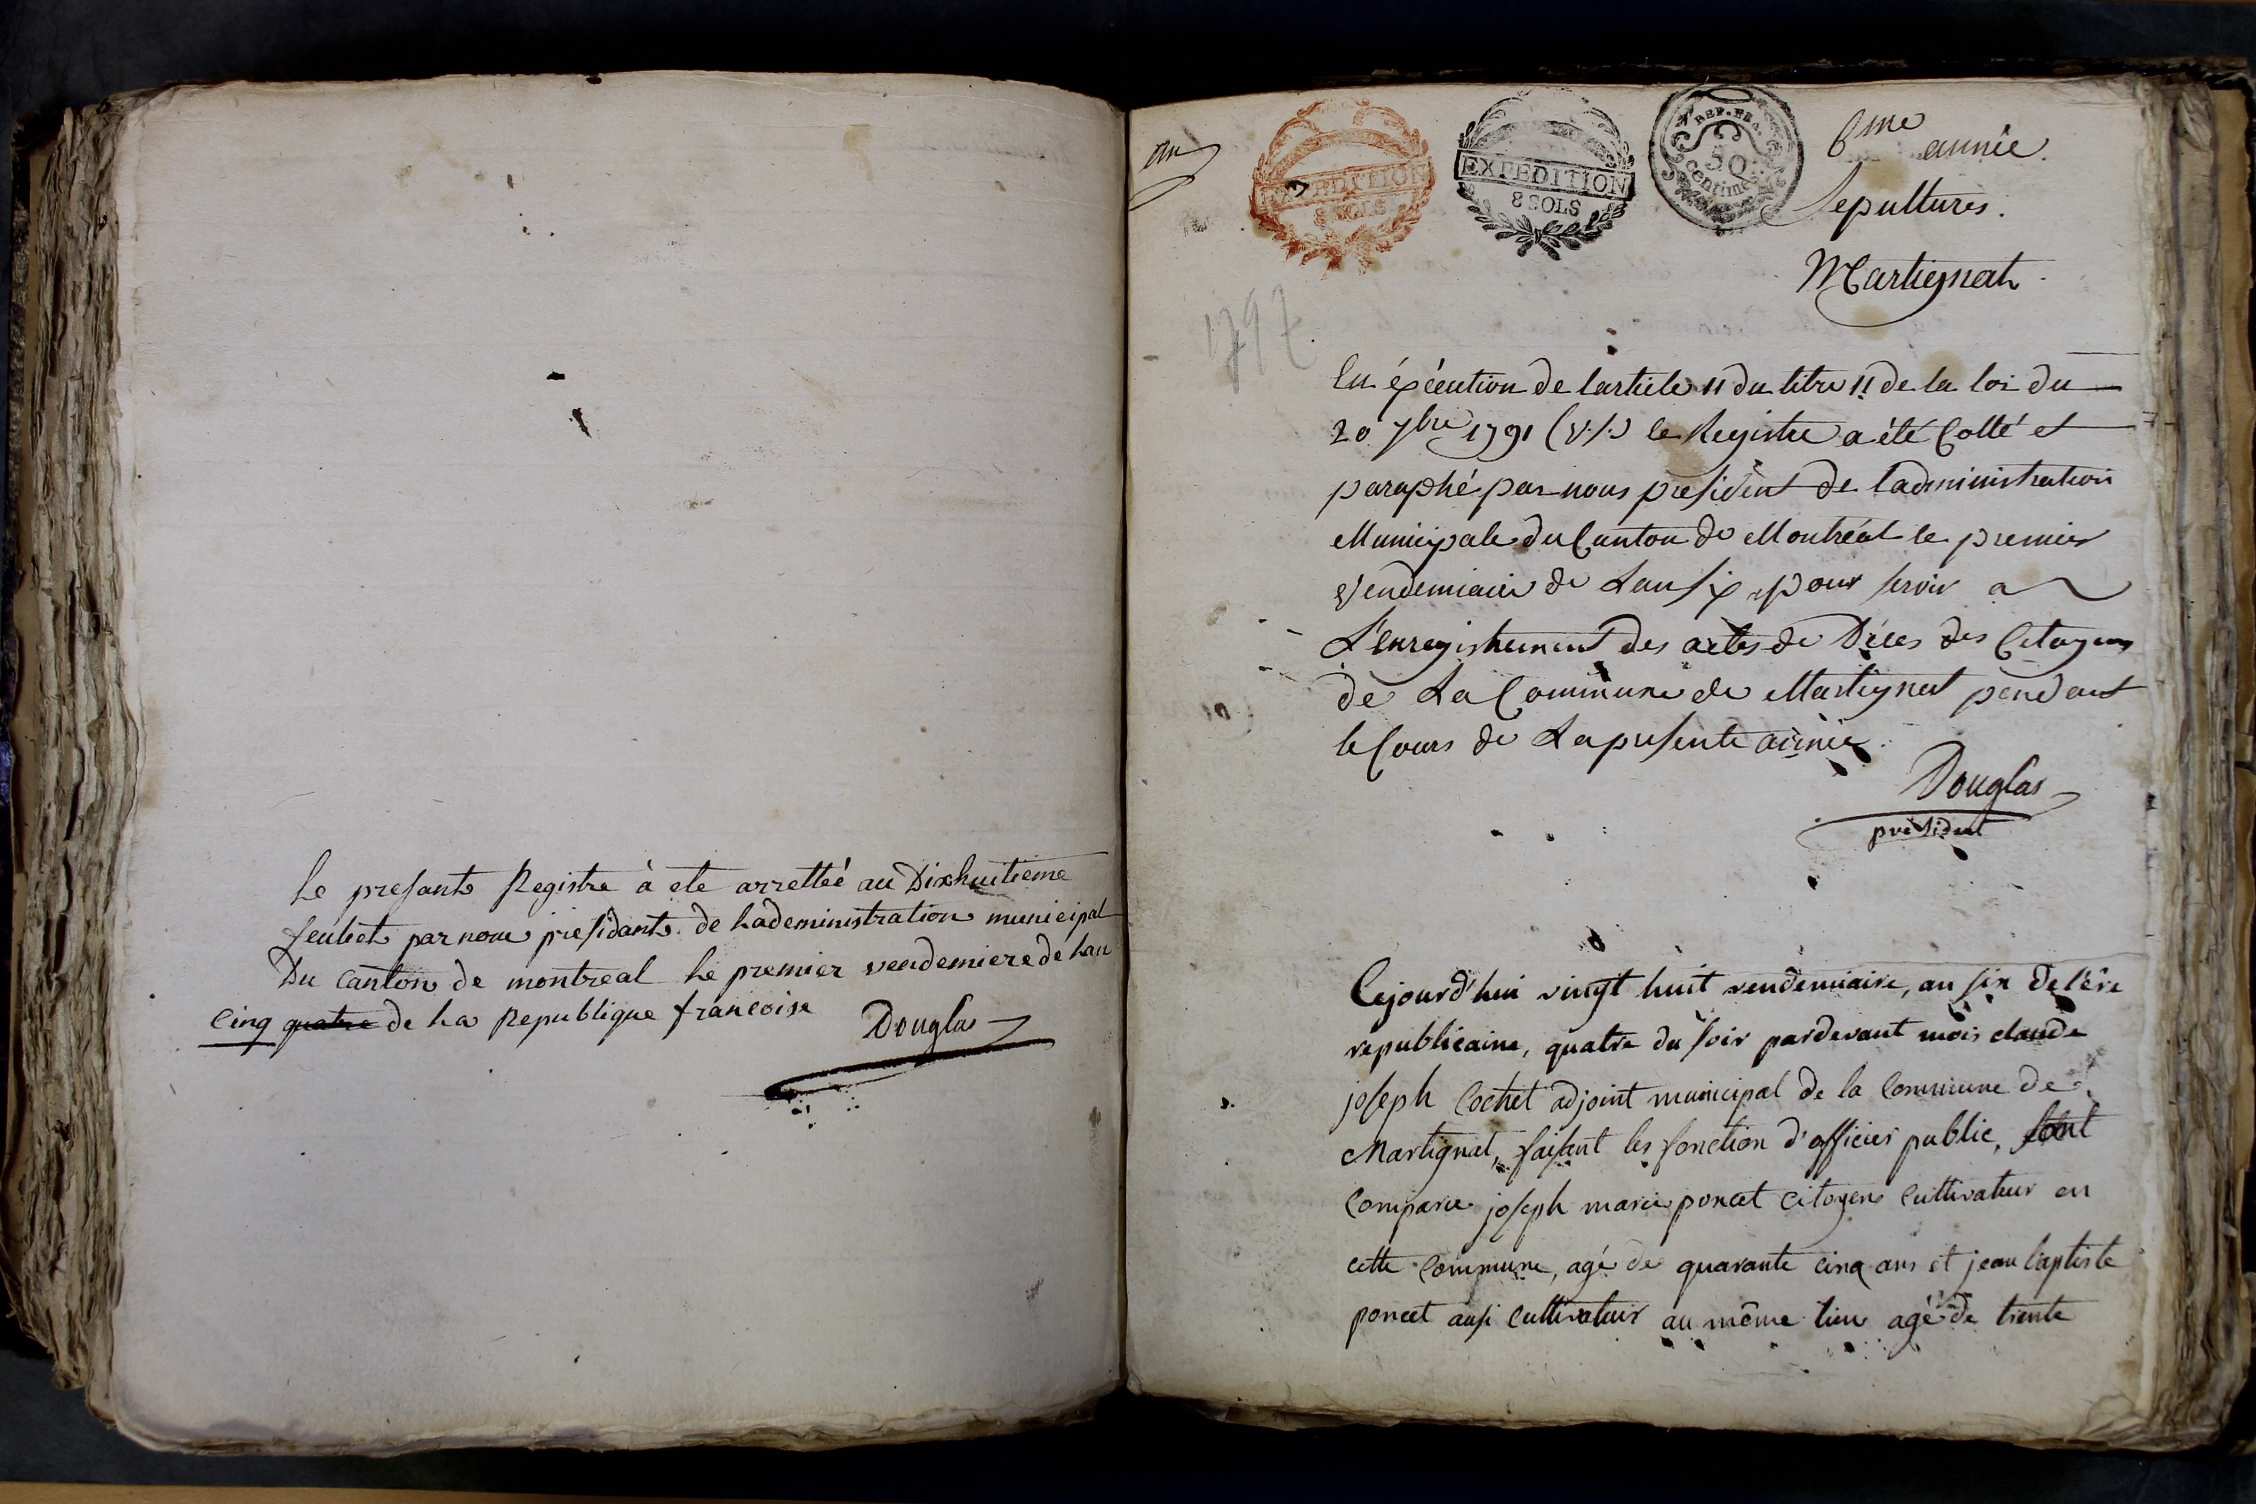 Le presant Registre à ete arretteé au Dixhuitieme
feuliet par nous presidant de Ladeministration municipal
Du canton de montreal Le premier vendemiere de Lan
Cinq quatre de La Republique francoise
Douglas
an
EXPEDITION
8 SOLS
EXPEDITION
8 SOLS
REP. FRA.
50
Centimes
6me année.
Sepultures.
Martignat.
1797
En éxécution de l'article 11 du titre 11 de la loi du
20 7bre 1791 (V.S.) le Registre a été Cotté et
paraphé par nous president de l'administration
Municipale du Canton de Montréal le premier
Vendemiaire de Lan six, pour servir a
L'Enregistrement des actes de Déces des Citoyens
de La Commune de Martignat pendant
le Cours de La presente année.
Douglas
président
Cejourd'hui vingt huit vendemiaire, an six de l'ére
republicaine, quatre du soir pardevant mois claude
joseph Cochet adjoint municipal de la Commune de
Martignat, faisant les fonction d'officier public, sont
Comparu joseph marie poncet citoyens Cultivateur en
cette Commune, agé de quarante cinq ans et jean baptiste
poncet ausi Cultivateur au même lieu agé de trente